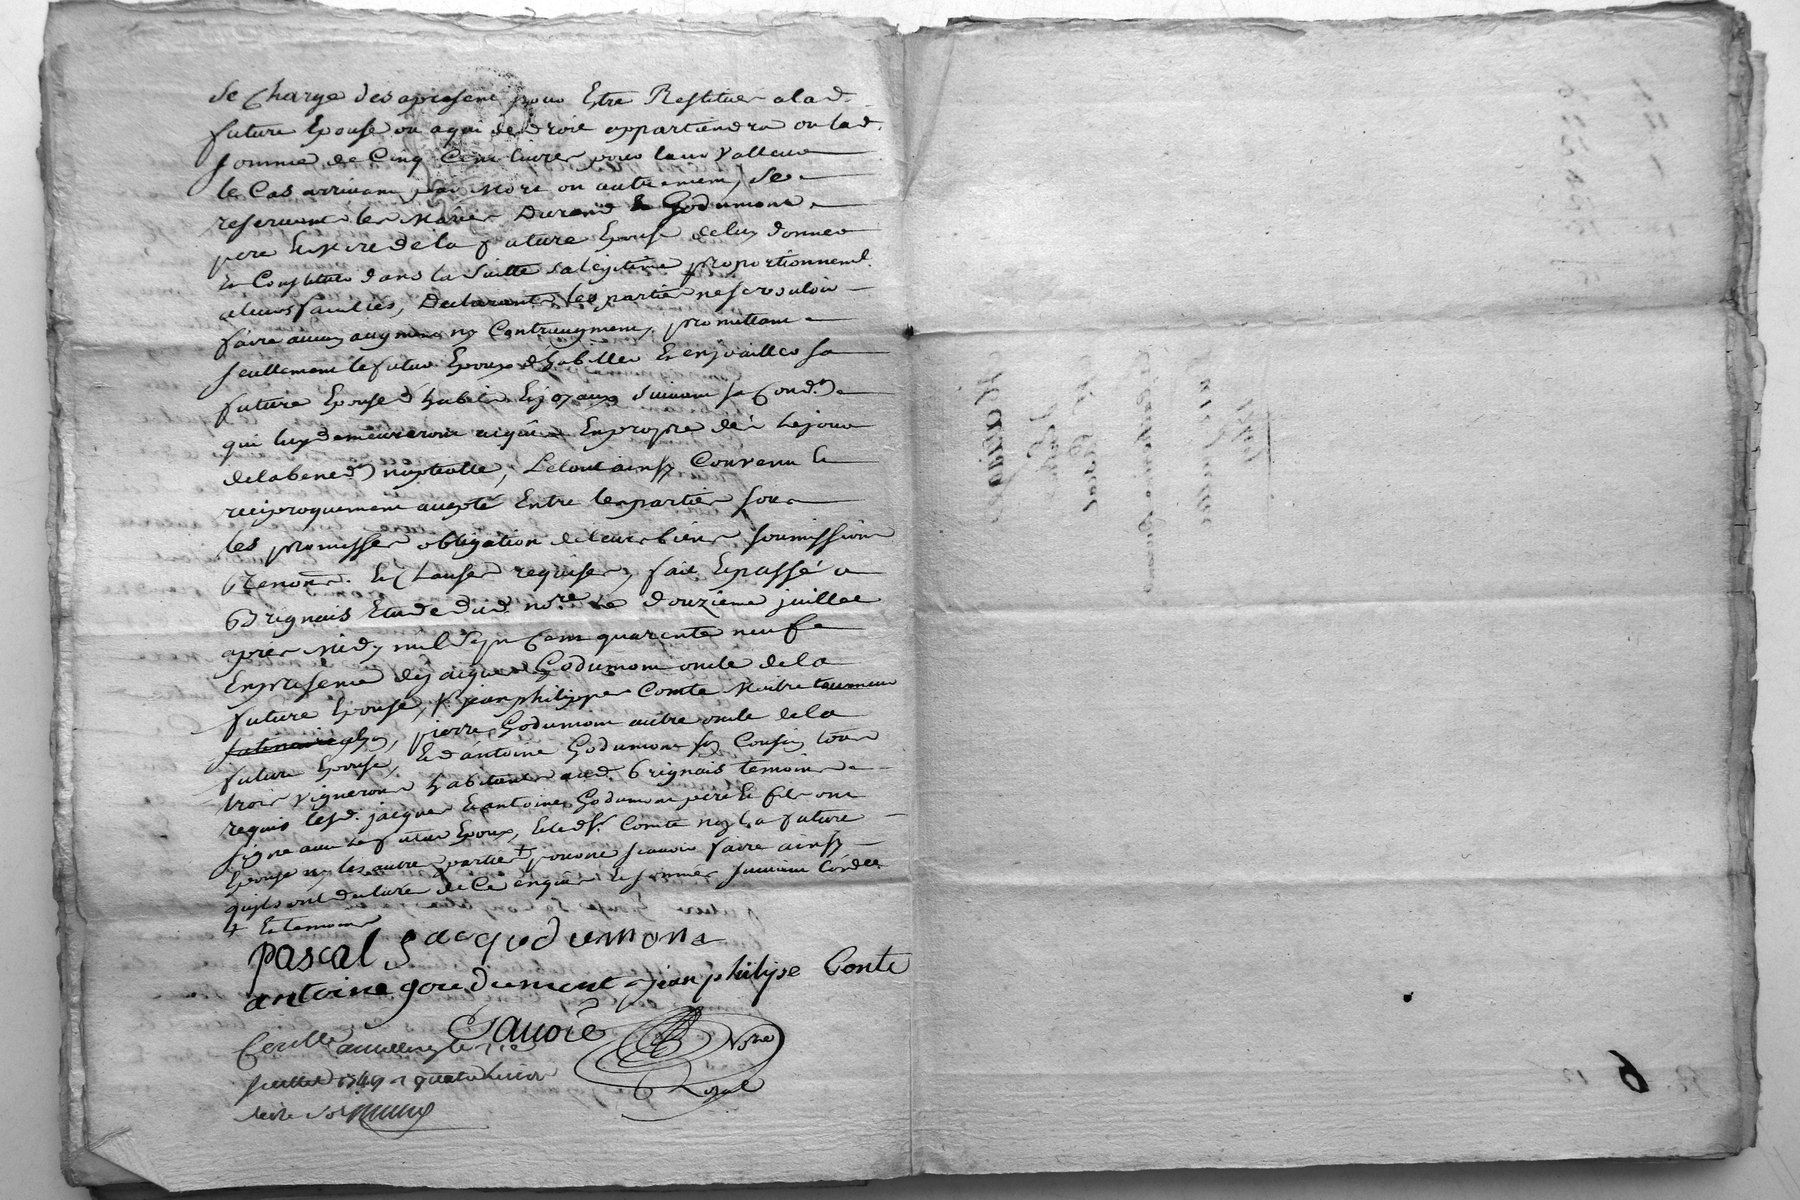 se Charge des apresent pour Estre Restituer alad.
future Epouse ou aqui de droit appartiendra ou lad.
somme de Cinq Cent livres pour leur Valleur
le Cas arrivant par Mort ou autrement, se
reservant les Mariés Durand & Godumont
pere Et Mere de la future Epouse de luy donner
Et Constituer dans la suitte sa legitime proportionnement
a leurs facultés, Declarant les parties ne scroulin
faire aucun augment ny Contreaugment, promettant
seullement le futur Epoux d'habiller Et enjoailler sa
future Epouse d'habits Et joyaux Suivant sa Cond.on
qui luy demeureront aquis En propre dès Le jour
de la bened.on nuptialle, Le tout ainsy Convenu Et
reciproquement accepté Entre les parties sous
les promesses obligation de leurs biens soumissions
Renon.ns Et Clauses requises, fait Et passé a
Brignais Etude dud. no.re Le douzieme juillet
apres midy mil Sept Cent quarente neuf
En presence de jacques Godumont oncle de la
future Epouse, s.r jean philippe Comte Maitre tourneur
pierre Godumont autre oncle de la
future Epouse, Et d'antoine Godumont son Cousin tous
trois Vignerons habitants aud. Brignais temoins
requis lesd. jacques Et antoine Godumont pere Et fils ont
signé avec Le futur Epoux, Et led. s.r Comte non La future
Epouse ny les autre parties + pour ne scavoir faire ainsy
quils ont declaré de Ce enquis Et sommés suivant L'ordce
+ Et temoins
pascal Jacque dumont
antoine goudument jean philipe Conte
Savoie Nore
Royal
Conllé a le
juillet 1749 r quatre livres

6